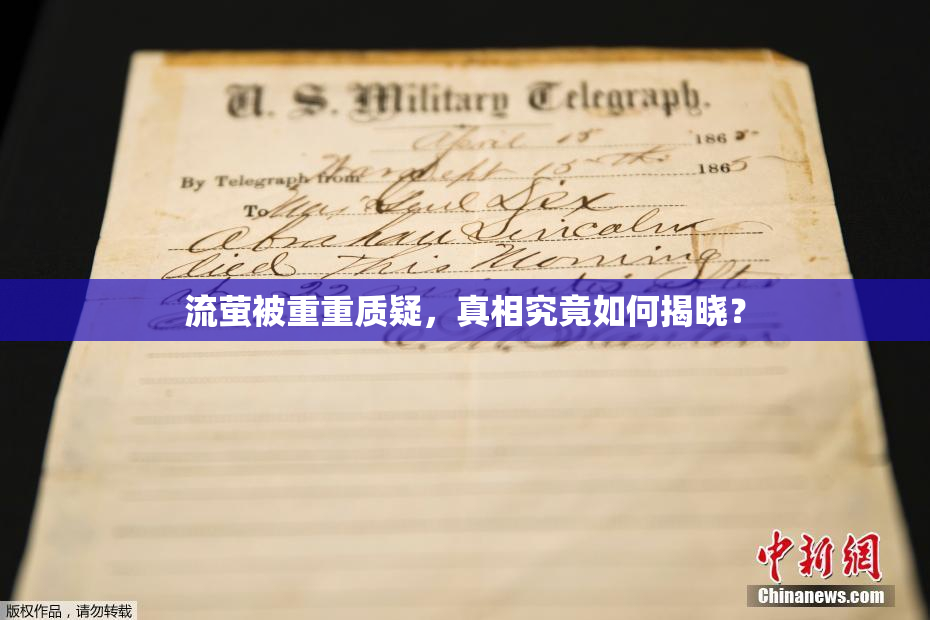 U. S. Military Telegraph.
April 15 1865
By Telegraph from War Dept 15th 1865
To Maj Genl Dix
Abraham Lincoln
died This Morning
at 22 minutes after
流萤被重重质疑，真相究竟如何揭晓？
E. M. Stanton
中新網
Chinanews.com
版权作品，请勿转载